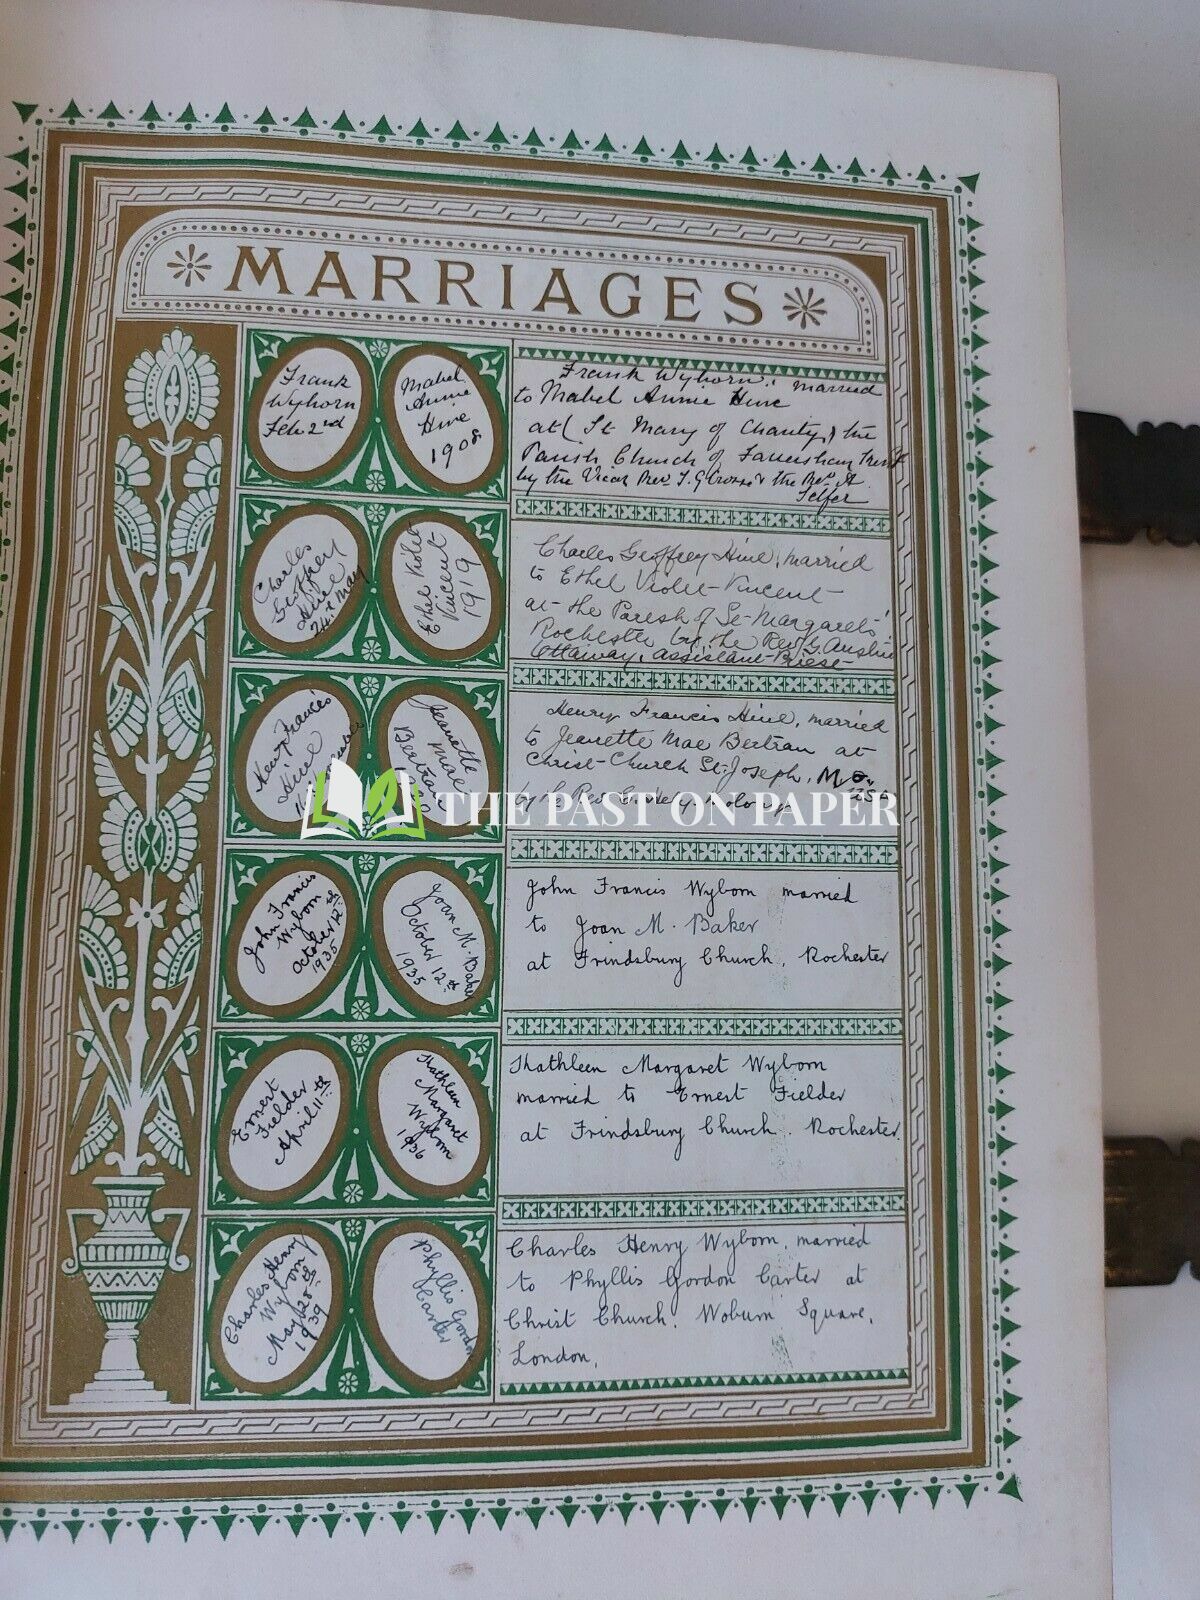 MARRIAGES
Frank
Wyborn
Feb 2nd
Mabel
Annie
Hine
1908
Frank Wyborn, married
to Mabel Annie Hine
at (St Mary of Charity) the
Parish Church of Faversham Kent
by the Vicar Rev. & the Rev. A
Telfer
Charles
Geoffrey
Hine
24th May
Ethel Violet
Vincent
1919
Charles Geoffrey Hine, married
to Ethel Violet Vincent
at the Parish of St Margarets'
Rochester by the Rev. G. Austin
Ottaway, assistant Priest
Henry Francis
Hine
Jeanette
Mae
Bertran
Henry Francis Hine, married
to Jeanette Mae Bertran at
Christ Church St Joseph, Mo,
USA
by the Rev.
THE PAST ON PAPER
John Francis
Wyborn
October 12th
1935
Joan M. Baker
October 12th
1935
John Francis Wyborn married
to Joan M. Baker
at Frindsbury Church, Rochester
Ernest
Fielder
April 11th
Kathleen
Margaret
Wyborn
1936
Kathleen Margaret Wyborn
married to Ernest Fielder
at Frindsbury Church. Rochester.
Charles Henry
Wyborn
May 25th
1939
Phyllis Gordon
Carter
Charles Henry Wyborn, married
to Phyllis Gordon Carter at
Christ Church, Woburn Square,
London.